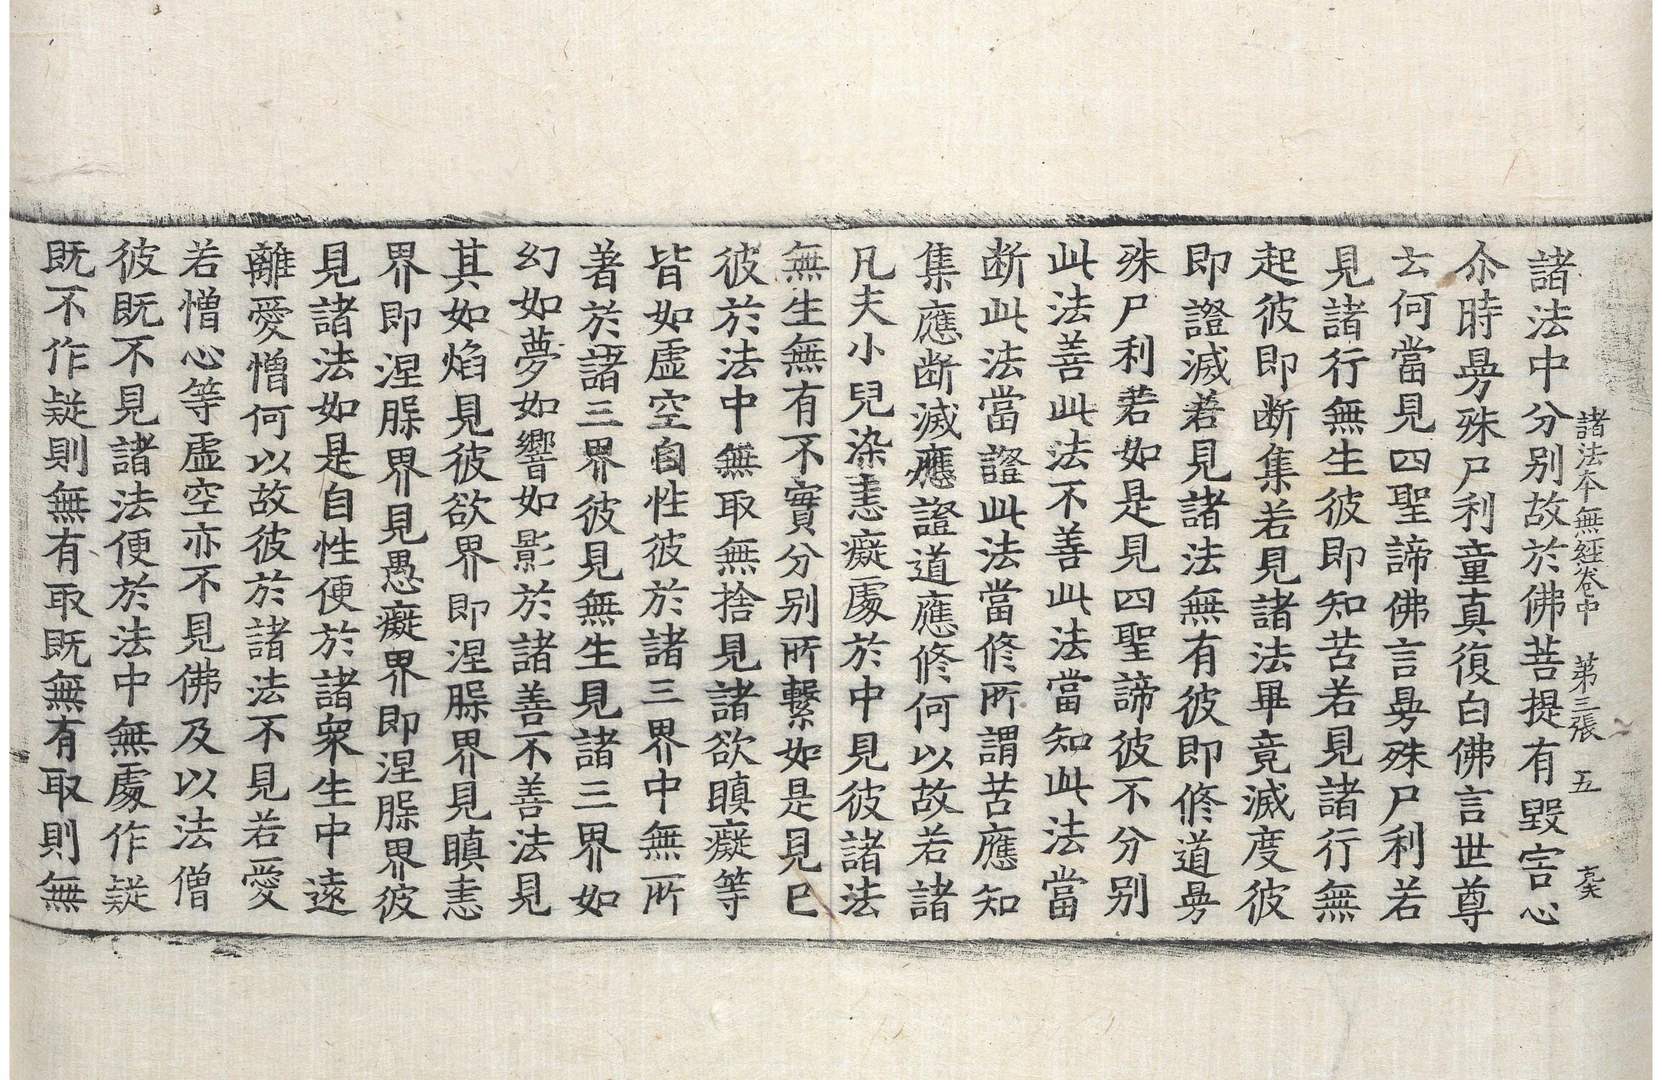 諸法本無經卷中 第三張 五
諸法中分別故於佛菩提有毀害心
尒時曼殊尸利童真復白佛言世尊
云何當見四聖諦佛言曼殊尸利若
見諸行無生彼即知苦若見諸行無
起彼即断集若見諸法畢竟滅度彼
即證滅若見諸法無有彼即修道曼
殊尸利若如是見四聖諦彼不分別
此法善此法不善此法當知此法當
断此法當證此法當修所謂苦應知
集應断滅應證道應修何以故若諸
凡夫小兒染恚癡處於中見彼諸法
無生無有不實分別所繫如是見已
彼於法中無取無捨見諸欲瞋癡等
皆如虛空自性彼於諸三界中無所
著於諸三界彼見無生見諸三界如
幻如夢如響如影於諸善不善法見
其如焰見彼欲界即涅槃界見瞋恚
界即涅槃界見愚癡界即涅槃界彼
見諸法如是自性便於諸衆生中遠
離愛憎何以故彼於諸法不見若愛
若憎心等虛空亦不見佛及以法僧
彼既不見諸法便於法中無處作疑
既不作疑則無有取既無有取則無